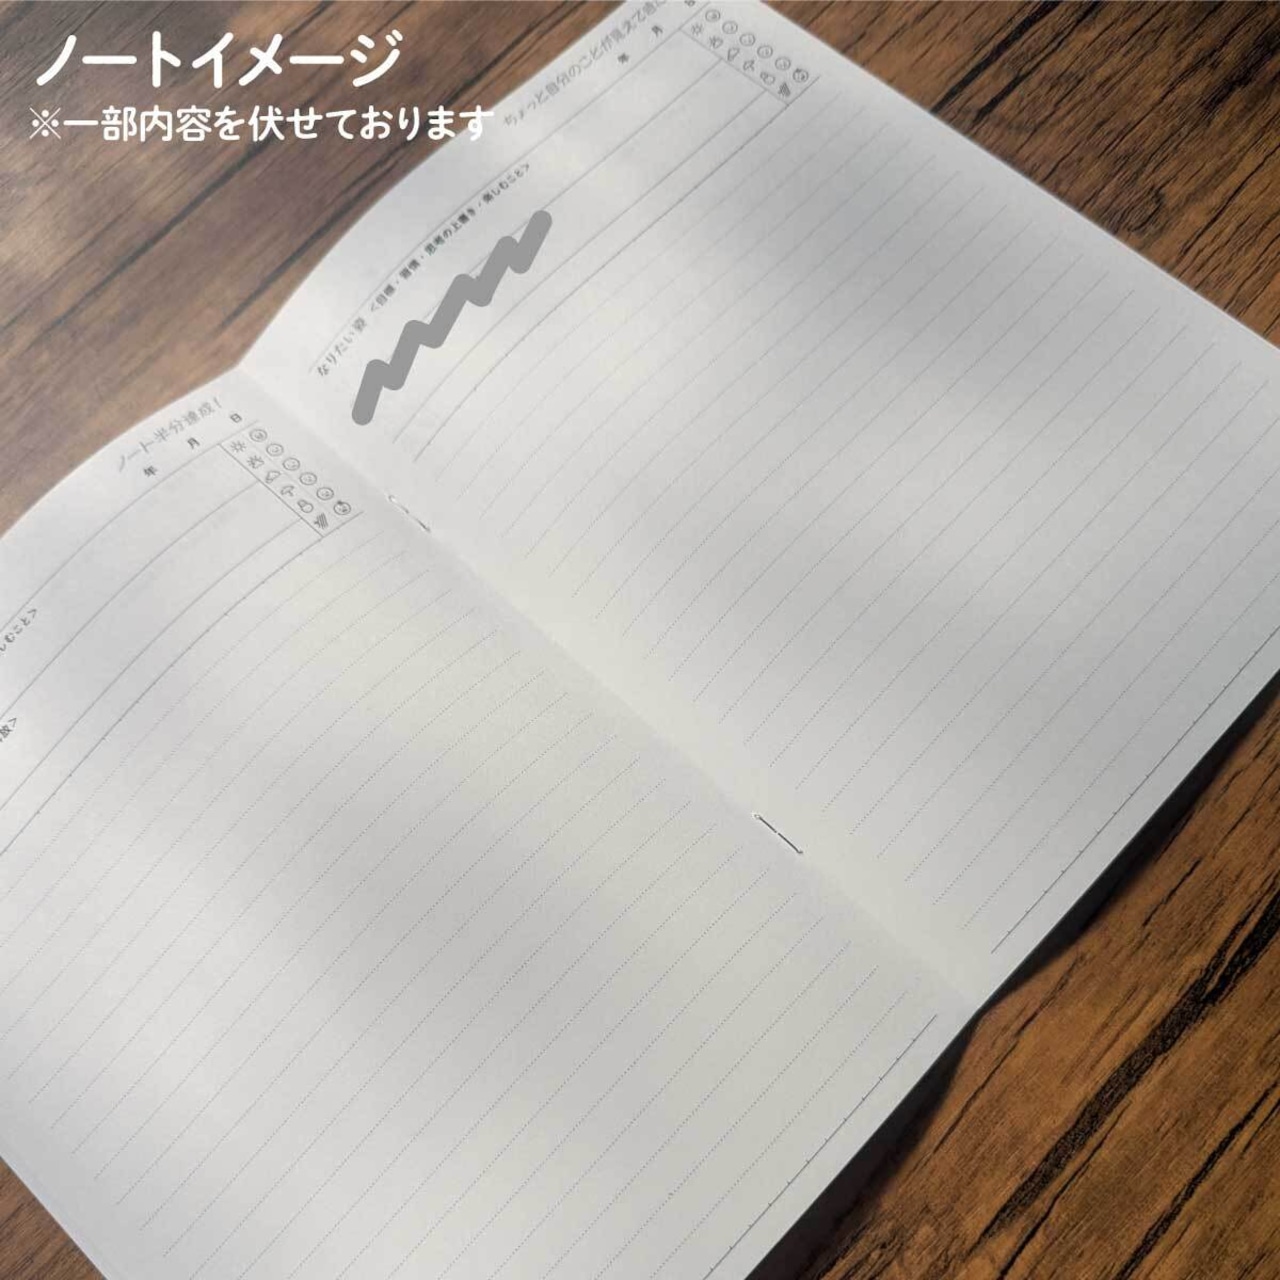 ノートイメージ
※一部内容を伏せております
ノート半分達成！
年 月 日
しむこと＞
放＞
ちょっと自分のことが見えて
年 月 日
なりたい姿 ＜目標・習慣・思考の上書き・楽しむこと＞